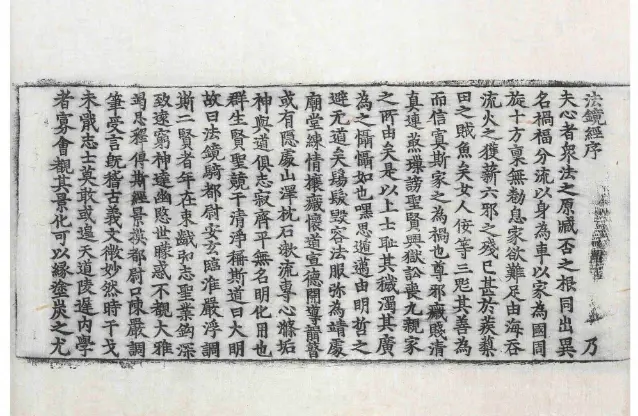 法鏡經序 乃
夫心者衆法之原臧否之根同出異
名禍福分流以身為車以家為國周
旋十方稟無勌息家欲難足由海吞
流火之獲薪六邪之殘已甚於蒺䔧
罔之賊魚矣女人佞等三魅其善為
而信寡斯家之為禍也尊邪穢賤清
真連叢璅謗聖賢興獄訟喪九親家
之所由矣是以上士恥其穢濁其廣
為之懾懾如也嘿思遁邁由明哲之
避无道矣鬄髮毀容法服弥為靖處
廟堂練情攘穢懷道宣德開導聾瞽
或有隱處山澤枕石漱流專心滌垢
神與道俱志寂齊乎無名明化周乎
群生賢聖競于清淨稱斯道曰大明
故曰法鏡騎都尉安玄臨淮嚴浮調
斯二賢者年在束齓弘志聖業鈎深
致遠窮神達幽愍世矇惑不覩大雅
竭思譯傳斯經景摸都尉口陳嚴調
筆受言旣稽古義文微妙然時干戈
未戢志士莫敢或遑大道陵遲內學
者寡會覩其景化可以緣塗炭之尤